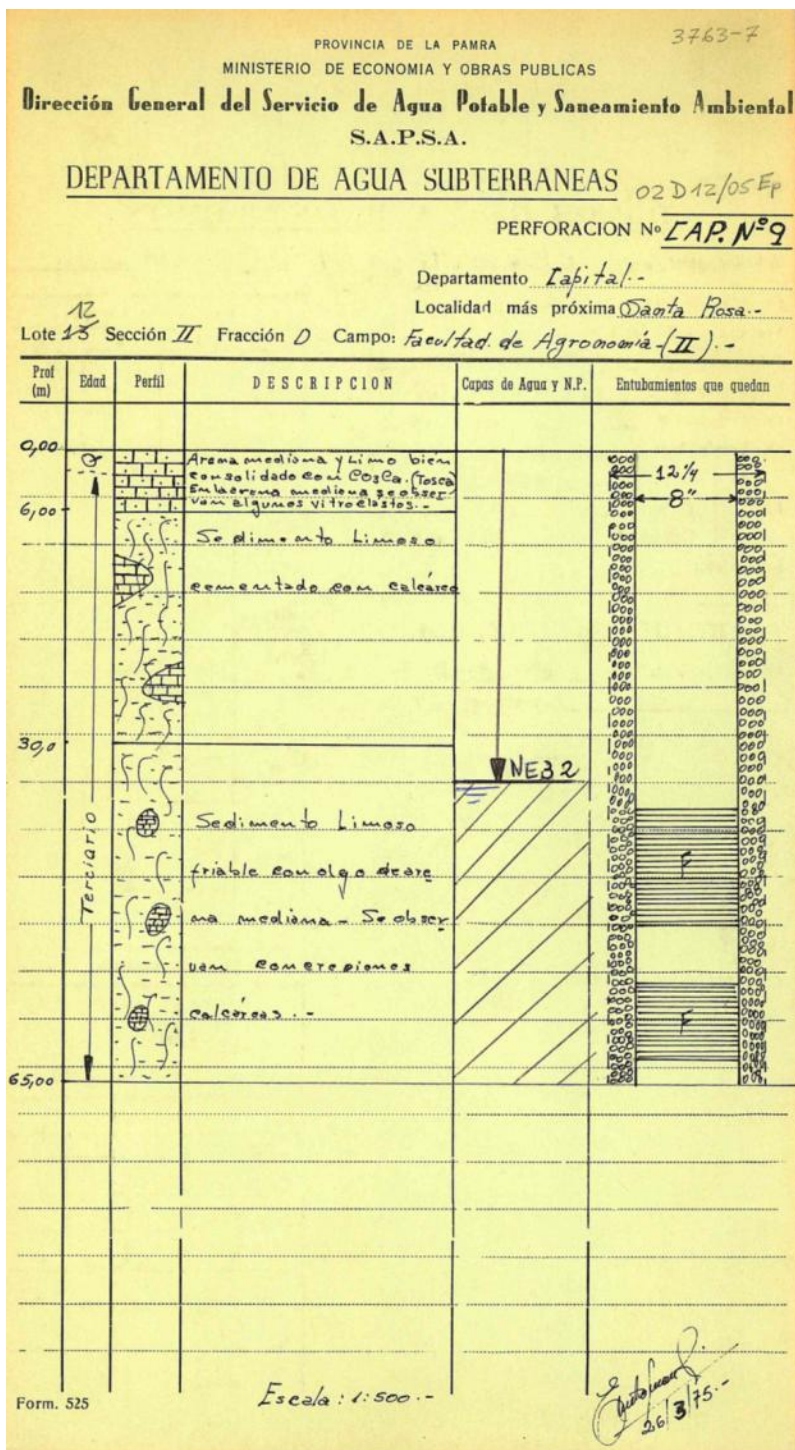 3763-7
PROVINCIA DE LA PAMPA
MINISTERIO DE ECONOMIA Y OBRAS PUBLICAS
Dirección General del Servicio de Agua Potable y Saneamiento Ambiental
S.A.P.S.A.
DEPARTAMENTO DE AGUA SUBTERRANEAS 02 D 12/05 Ep
PERFORACION Nº CAP. Nº 9
Departamento Capital.-
Localidad más próxima Santa Rosa.-
12
Lote 13 Sección II Fracción D Campo: Facultad de Agronomía-(II).-
Prof (m) Edad Perfil DESCRIPCION Capas de Agua y N.P. Entubamientos que quedan
0,00
Q
Arena mediana y Limo bien
consolidado con CO3Ca. (Tosca)
En la arena mediana se obser
van algunos vitroclastos.-
12 1/4
8"
6,00
Sedimento Limoso
cementado con calcáreo
30,0
NE32
Terciario
Sedimento Limoso
friable con algo de are
na mediana - Se obser
van concreciones
calcáreas.-
F
F
65,00
Form. 525
Escala: 1:500.-
26/3/75.-